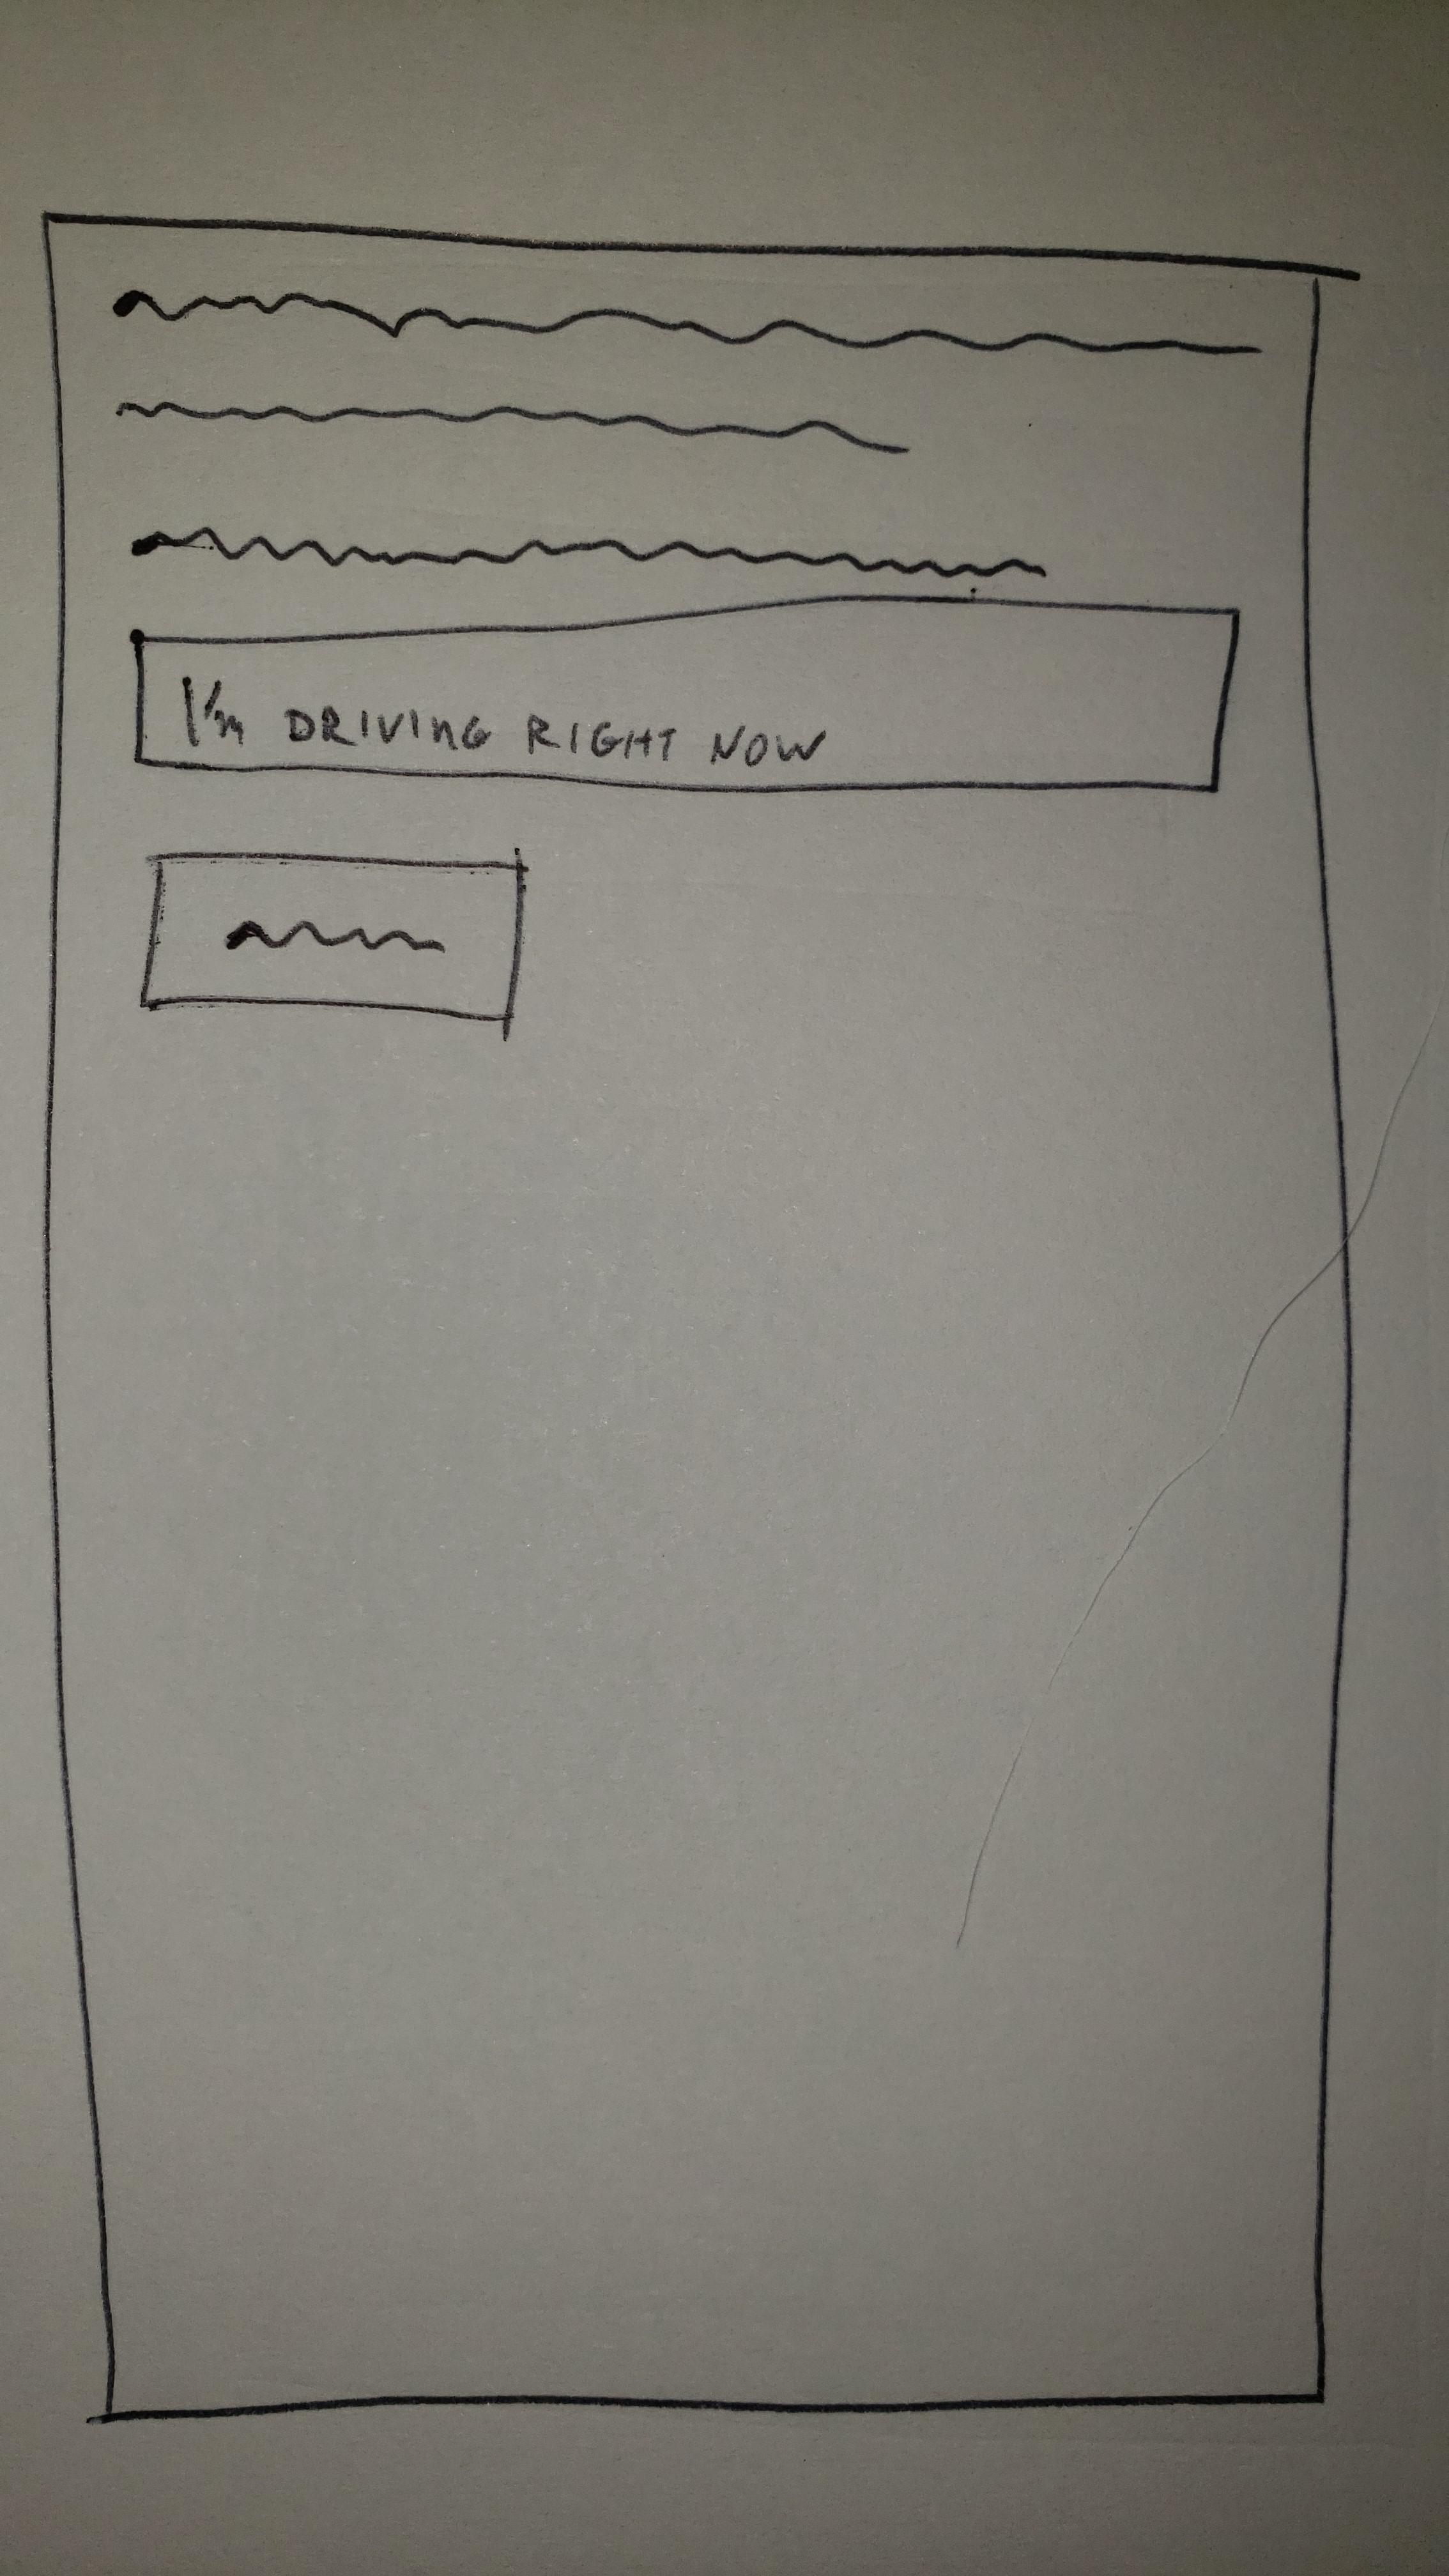 I'm DRIVING RIGHT NOW